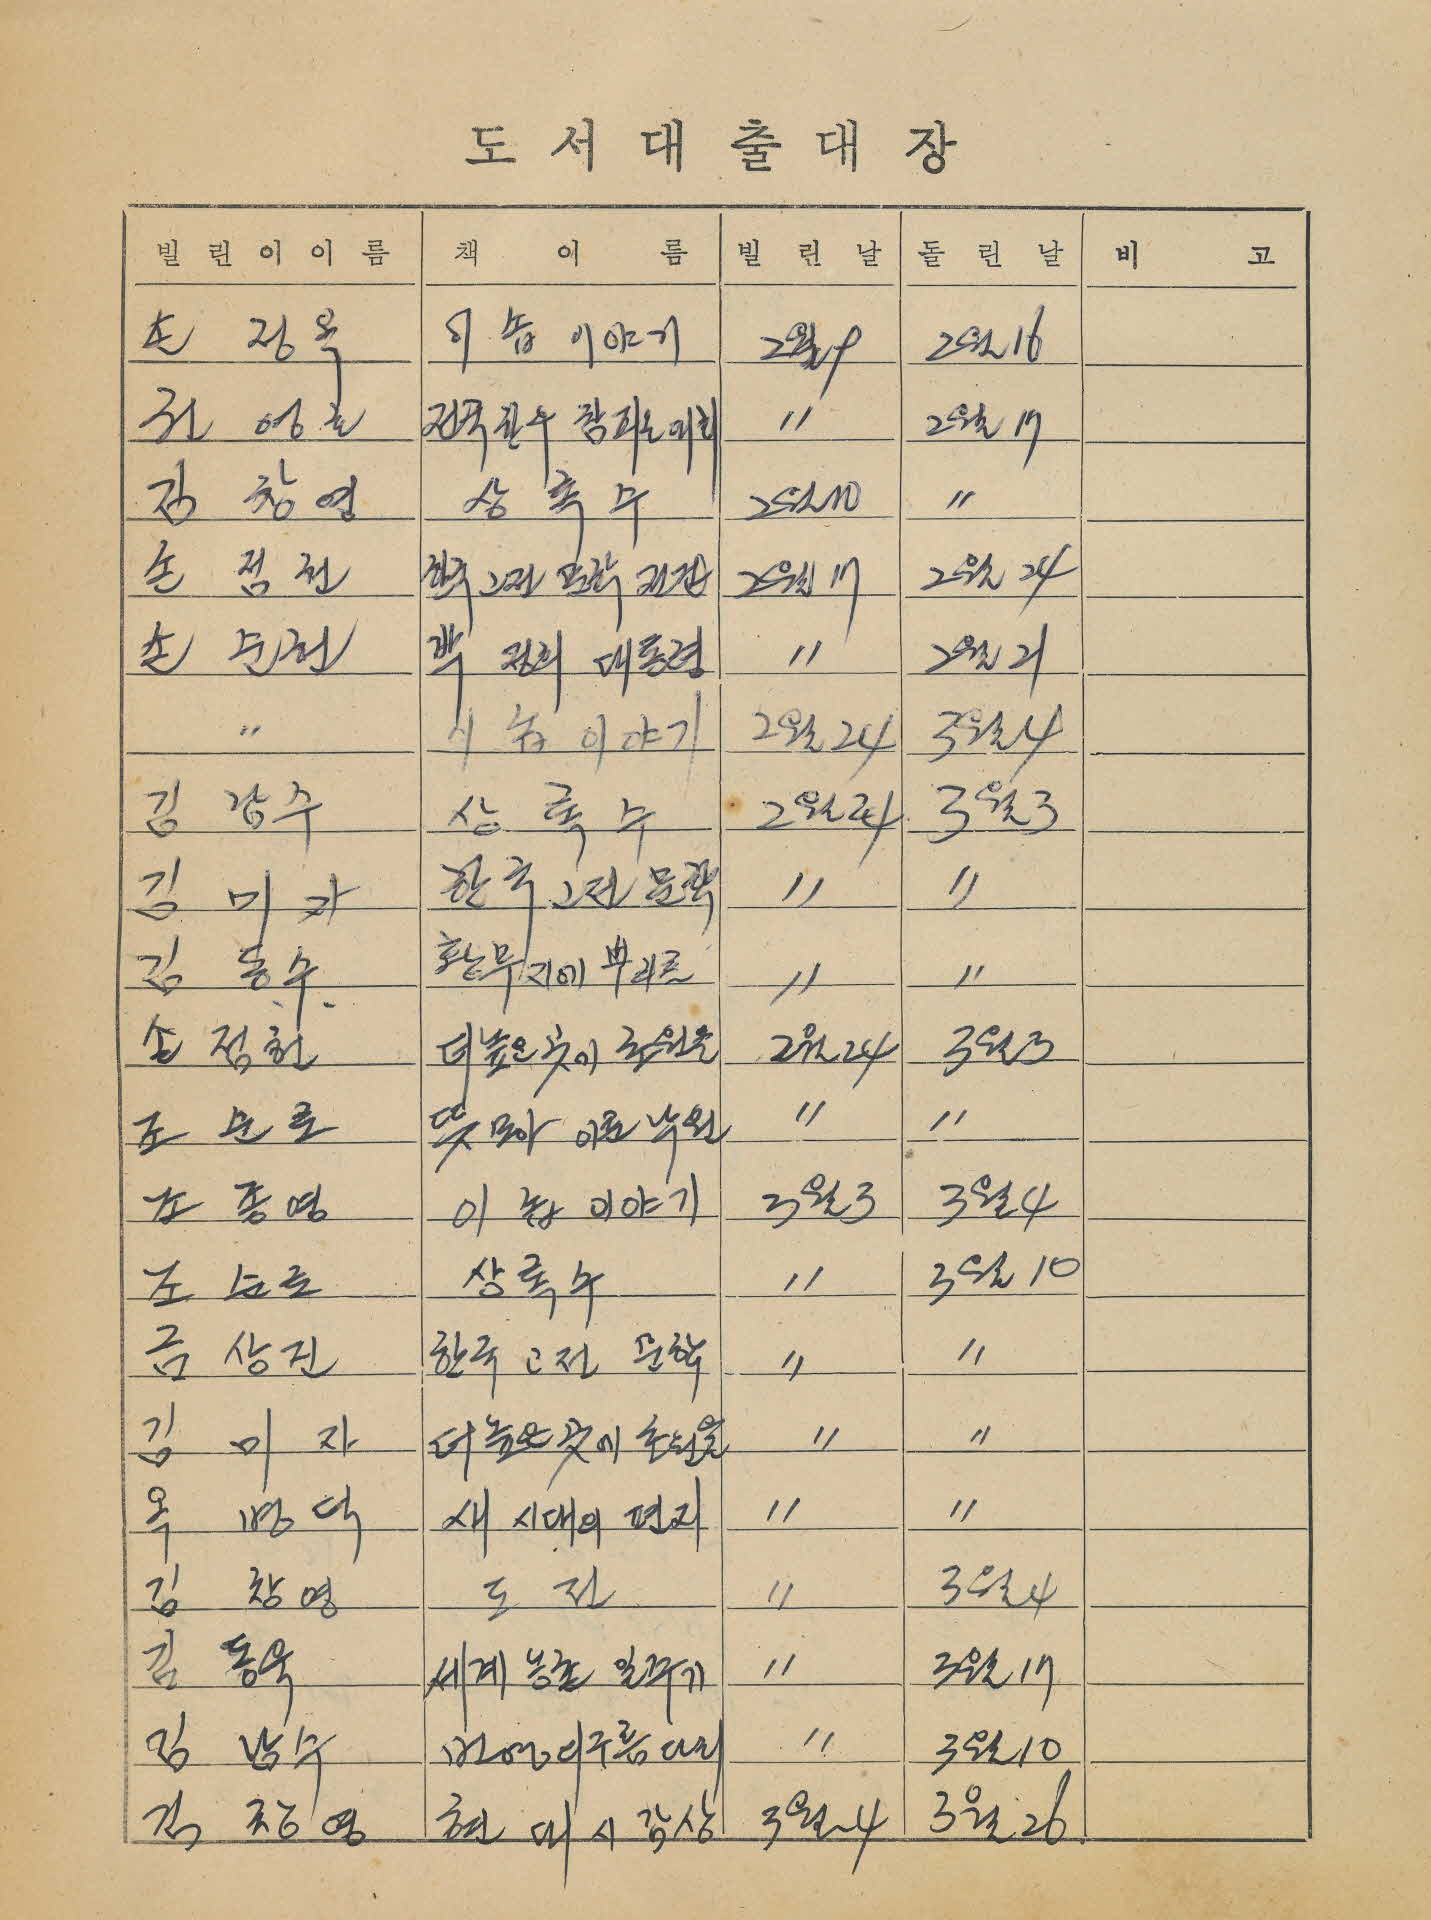 도서대출대장
빌린이이름 책이름 빌린날 돌린날 비고
손 정옥 이솝이야기 2월9 2월16
권 영호 2월17
김창영 상록수 2월10 〃
손점헌 한국고전문학전집 2월17 2월24
손순헌 박정희 대통령 〃 2월21
〃 이솝이야기 2월24 3월4
김갑수 상록수 2월24 3월3
김미자 한국고전문학 〃 〃
김동수 황무지에 뿌리를 〃 〃
손점헌 더높은곳에 초원을 2월24 3월3
조순로 뜻모아 이룬 낙원 〃 〃
조종영 이솝이야기 3월3 3월4
조순로 상록수 〃 3월10
금상진 한국고전 문학 〃 〃
김미자 더높은곳에 초원을 〃 〃
옥명덕 새시대의 편지 〃 〃
김창영 도전 〃 3월4
김동욱 세계농촌 일주기 〃 3월17
김남수 〃 3월10
김창영 현대시감상 3월4 3월26